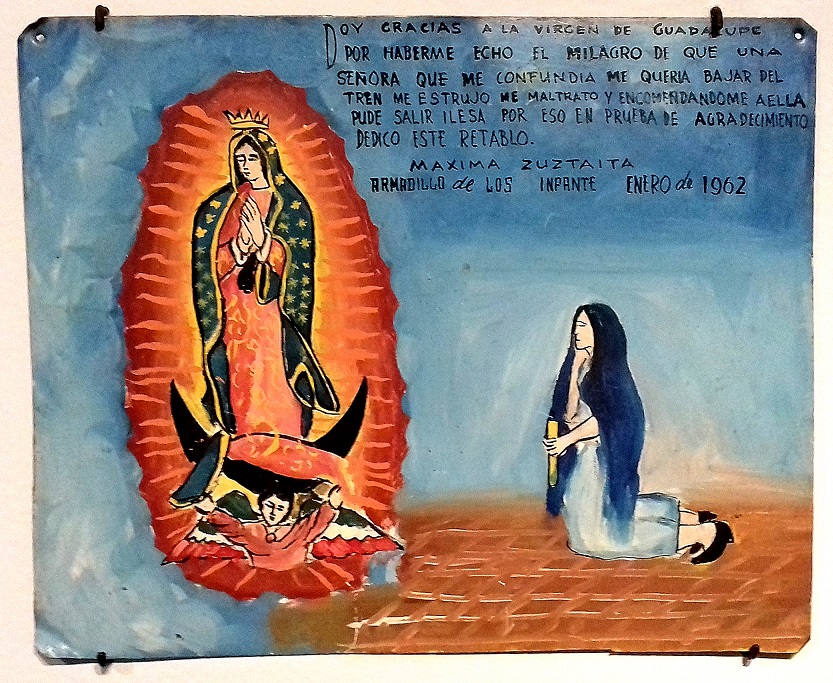 DOY GRACIAS A LA VIRGEN DE GUADALUPE
POR HABERME ECHO EL MILAGRO DE QUE UNA
SEÑORA QUE ME CONFUNDIA ME QUERIA BAJAR DEL
TREN ME ESTRUJO ME MALTRATO Y ENCOMENDANDOME AELLA
PUDE SALIR ILESA POR ESO EN PRUEBA DE AGRADECIMIENTO
DEDICO ESTE RETABLO.
MAXIMA ZUZTAITA
ARMADILLO de LOS INPANTE ENERO de 1962